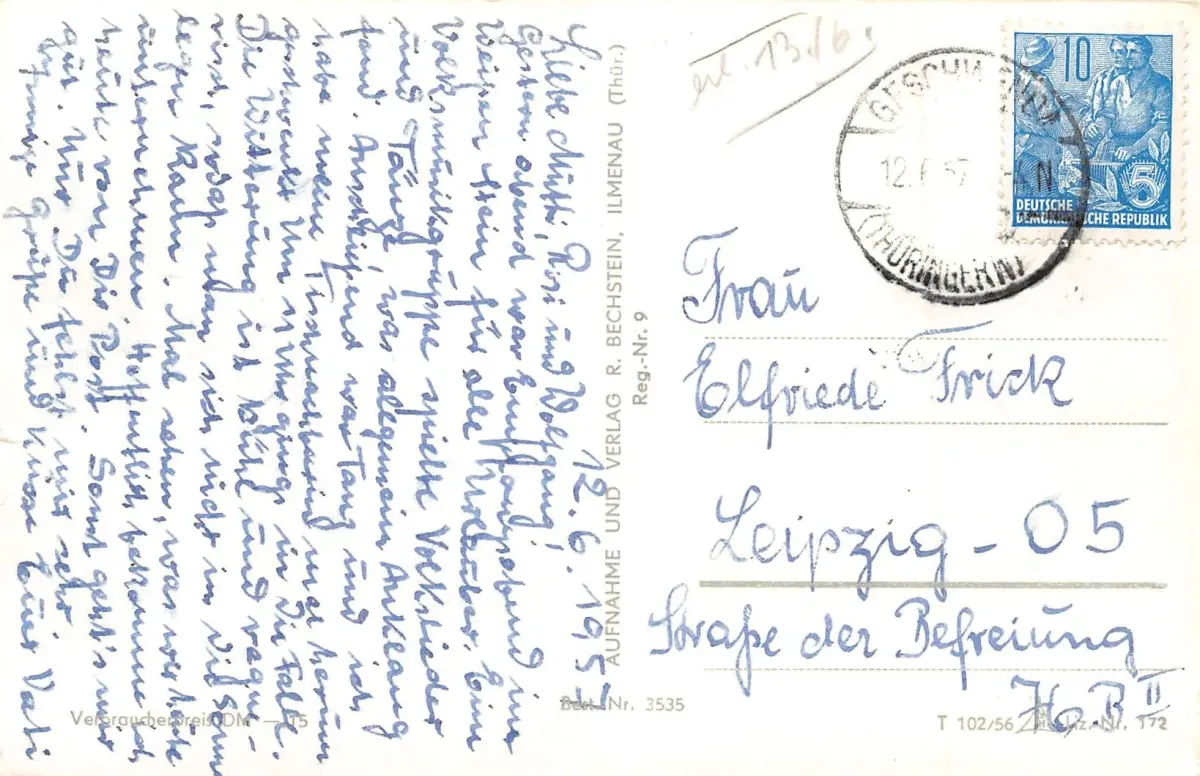 12.6.1957
Liebe Mutti, Rosi und Wolfgang!
Gestern abend war Empfangsabend im
Weißen Stein für alle Urlauber. Eine
Volksmusikgruppe spielte Volkslieder
und Tänze, was allgemein Anklang
fand. Anschließend war Tanz und ich
habe meine Tischnachbarin mal herum
geschwenkt. Um 11 Uhr gings in die Falle.
Die Witterung ist kühl und regne-
risch, sodaß man sich nicht in die Sonne
legen kann. Mal sehen, was wir heute
unternehmen. Hoffentlich bekomme ich
heute von Dir Post. Sonst geht's mir
gut. Nur Du fehlst mir sehr.
Grüße und Küsse Euer Vati
AUFNAHME UND VERLAG R. BECHSTEIN, ILMENAU (THÜR.)
Reg.-Nr. 9
erl. 13./6.
GESCHWENDA
12.6.57
(THÜRINGEN)
10
5
DEUTSCHE
DEMOKRATISCHE REPUBLIK
Frau
Elfriede Frick
Leipzig - O5
Straße der Befreiung
II
Verbraucherpreis DM -.15
Best. Nr. 3535
T 102/56 Liz.-Nr. 172